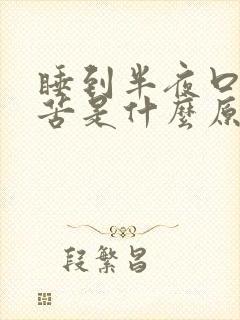 睡到半夜口
苦是什麼原
段繁昌